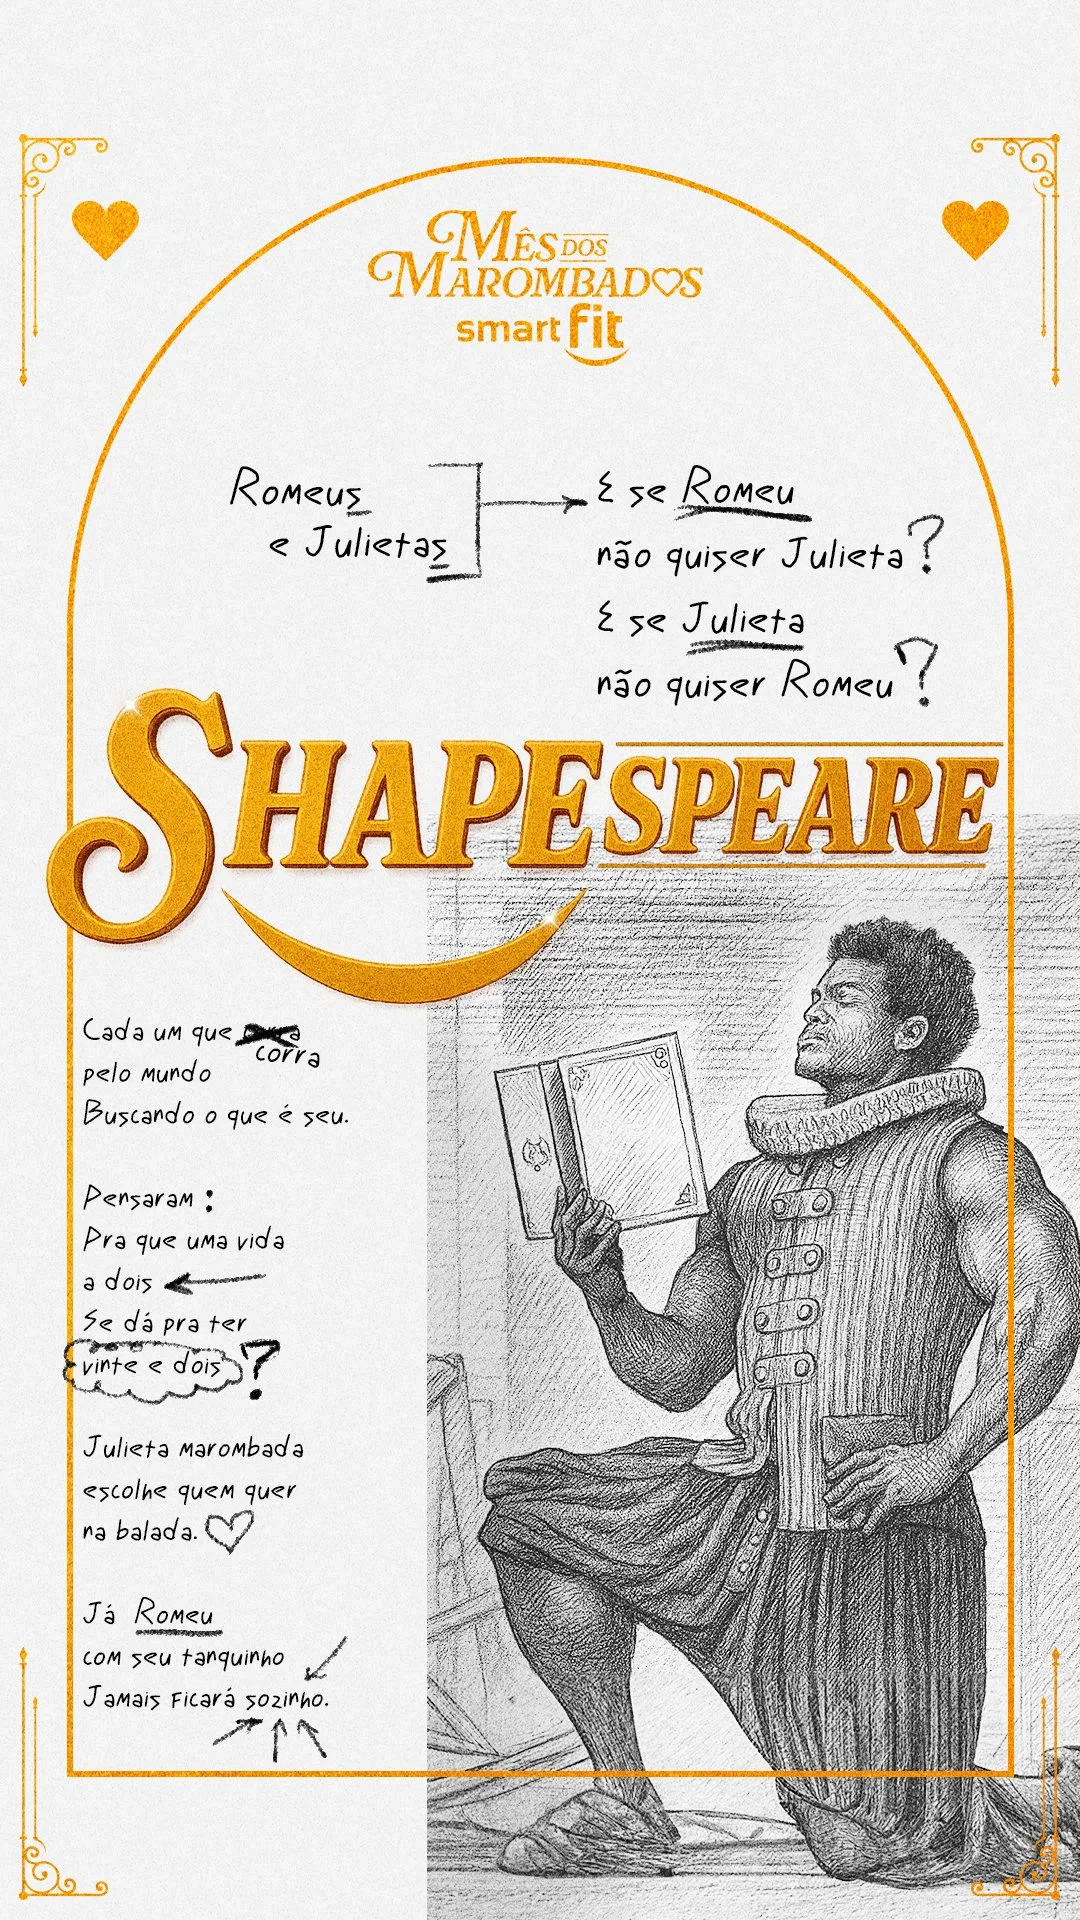 MÊS DOS
MAROMBADOS
smart fit
Romeus
e Julietas
E se Romeu
não quiser Julieta?
E se Julieta
não quiser Romeu?
SHAPESPEARE
Cada um que
corra
pelo mundo
Buscando o que é seu.
Pensaram:
Pra que uma vida
a dois
Se dá pra ter
vinte e dois?
Julieta marombada
escolhe quem quer
na balada.
Já Romeu
com seu tanquinho
Jamais ficará sozinho.